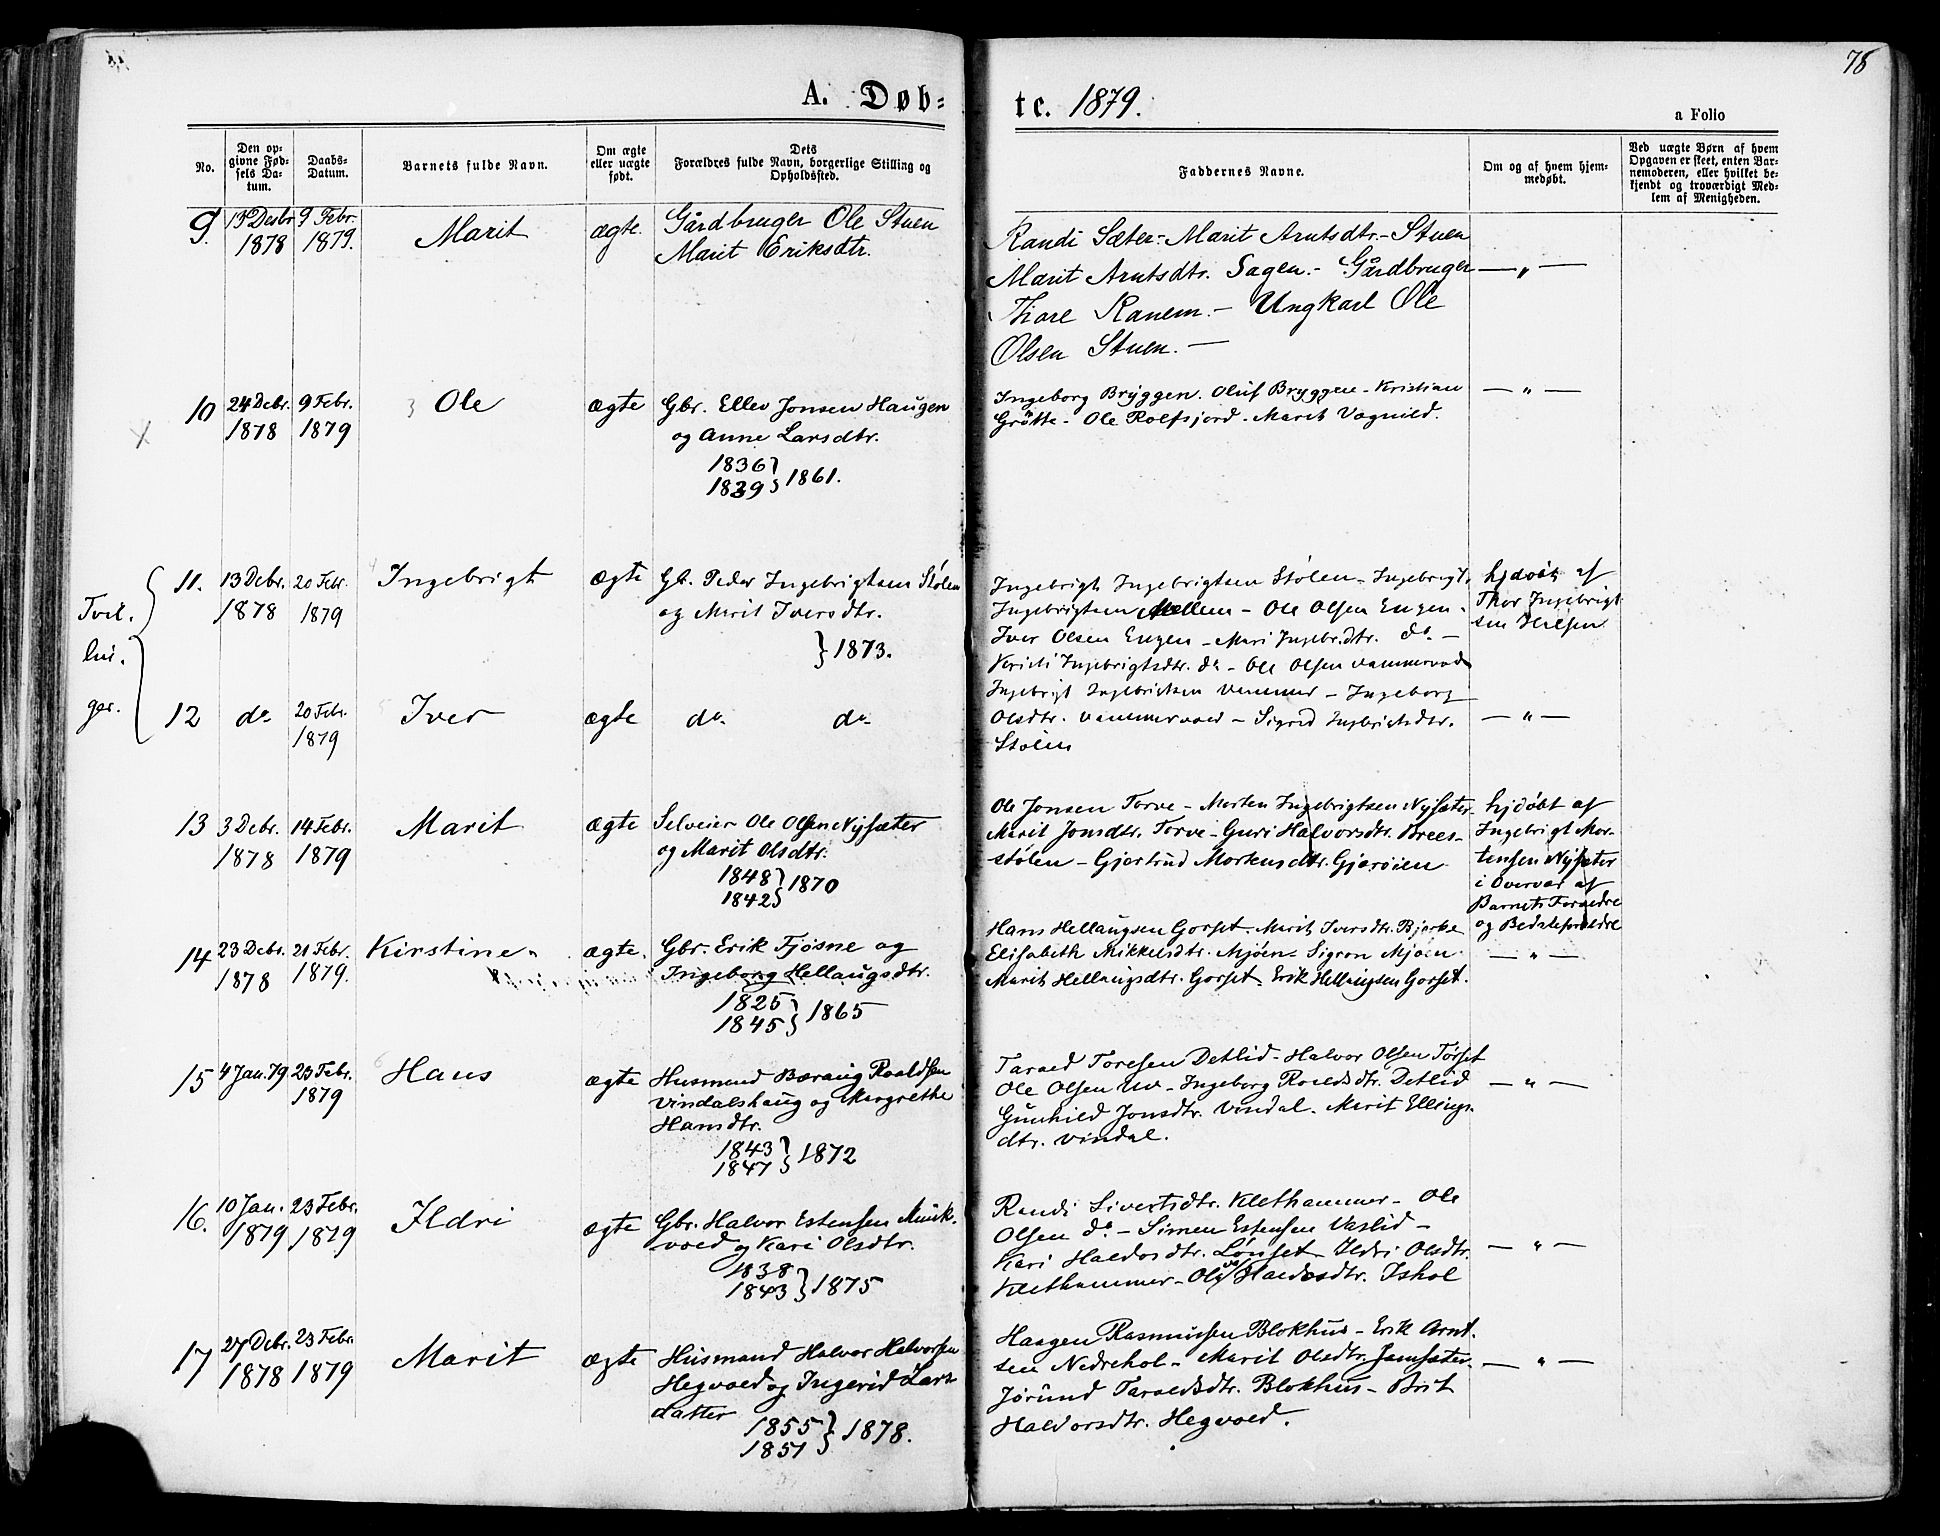 78
A. Døb=
te. 1879.
a Folio
No.
Den op-
givne Fød-
sels Da-
tum.
Daabs-
Datum.
Barnets fulde Navn.
Om ægte
eller uægte
født.
Dets
Forældres fulde Navn, borgerlige Stilling og
Opholdssted.
Faddernes Navne.
Om og af hvem hjem-
medøbt.
Ved uægte Børn af hvem
Opgaven er skeet, enten Bar-
nemoderen, eller hvilket be-
kjendt og troværdigt Med-
lem af Menigheden.
9.
13 Desbr
1878
9 Febr.
1879.
Marit
ægte.
Gårdbruger Ole Stuen
Marit Eriksdtr.
Randi Sæter - Marit Arntsdtr. - Stuen
Marit Arntsdtr. Sagen. - Gårdbruger
Tore Ranem. - Ungkarl Ole
Olsen Stuen. -
— " —
10
24 Debr.
1878
9 Febr.
1879
Ole
ægte
Gbr. Ellev Jonsen Haugen
og Anne Larsdtr.
1836
1839 } 1861.
Ingeborg Bryggen. Oluf Bryggen - Kristian
Grøtte - Ole Rolfsjord. Marit Vognild.
— " —
Tvil.
lin.
ger.
11.
13 Debr.
1878
20 Febr.
1879
Ingebrigt
ægte
Gb. Peder Ingebrigtsen Stølen
og Marit Iversdtr.
} 1873.
Ingebrigt Ingebrigtsen Stølen - Ingebrigt
Ingebrigtsen Mellem - Ole Olsen Engen -
Iver Olsen Engen - Mari Ingebr.dtr. do -
Kirsti Ingebrigtsdtr. do - Ole Olsen Vammervold
Ingebrigt Ingebrigtsen Vammer - Ingeborg
Olsdtr. Vammervold - Sigrid Ingbrigtsdtr.
Stølen
hjdøbt af
Thor Ingebrigt
sen
12
do
20 Febr.
1879
Iver
ægte
do. do.
— " —
13
3 Debr.
1878
14 Febr.
1879
Marit
ægte
Selveier Ole Olsen Nysæter
og Marit Olsdtr.
1848
1842 } 1870
Ole Jonsen Torve - Morten Ingebrigtsen Nysæter
Marit Jonsdtr. Torve - Guri Halvorsdtr. Brees-
stølen - Gjertrud Mortensdtr. Gjærøien
hjdøbt af
Ingebrigt Mor-
tensen Nysæter
i Overvær af
Barnets Forældre
og Bedsteforældre
14
23 Debr.
1878
21 Febr.
1879.
Kirstine
ægte.
Gbr. Erik Fjøsne og
Ingeborg Hellaugsdtr.
1825
1845 } 1865
Hans Hellaugsen Gorset. Marit Iversdtr. Bjerke
Elisabeth Mikkelsdtr. Mjøen - Sigron Mjøen
Marit Hellaugsdtr. Gorset - Erik Hellaugsen Gorset.
— " —
15
4 Jan. 79
23 Febr.
1879
Hans
ægte
Husmand Bæraug Roaldsen
Vindalshaug og Margrethe
Hansdtr.
1843
1847 } 1872
Tarald Toresen Detlid - Halvor Olsen Tørset
Ole Olsen Uv - Ingeborg Roaldsdtr. Detlid
Gunhild Jonsdtr. Vindal. Marit Ellings-
dtr. Vindal.
— " —
16.
10 Jan.
1879
23 Febr.
1879
Ildri
ægte
Gbr. Halvor Estensen Munk-
vold og Kari Olsdtr.
1838
1843 } 1875
Randi Sivertsdtr. Klethammer - Ole
Olsen do - Simen Estensen Vaslid -
Kari Haldorsdtr. Lønset - Ildri Olsdtr.
Klethammer - Olga Haldorsdtr. Ishol
— " —
17
27 Debr.
1878
23 Febr.
1879
Marit
ægte
Husmand Halvor Halvorsen
Hegvold og Ingerid Lars
datter
1855
1851 } 1878.
Haagen Rasmussen Blokhus - Erik Arnt.
sen Nedrehol - Marit Olsdtr. Jamsæter
Jørund Taraldsdtr. Blokhus - Brit
Haldorsdtr. Hegvold.
— " —